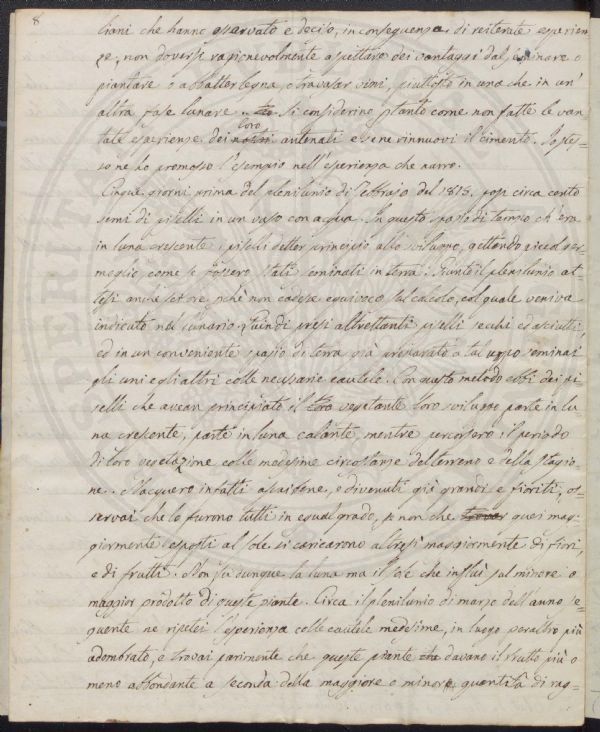 8
liani che hanno osservato e deciso, in conseguenza, di reiterate esperien=
ze, non doversi ragionevolmente aspettare dei vantaggi dal seminare o
piantare o abbatter legna, o travasar vini, piuttosto in una che in un'
altra fase lunare. Si considerino pertanto come non fatte le van
loro
tate esperienze dei nostri antenati e se ne rinnuovi il cimento. Io stes=
so ne ho promosso l'esempio nell'esperienza che narro.
Cinque giorni prima del plenilunio di Febbrajo del 1815. posi circa cento
semi di piselli in un vaso con acqua. In questo spazio di tempo ch'era
in luna crescente i piselli detter principio allo sviluppo, gettando piccol ger=
moglio come se fossero stati seminati in terra: Giunto il plenilunio at=
tesi anche sei ore, pchè non cadesse equivoco sul calcolo, col quale veniva
indicato nel lunario. Quindi presi altrettanti piselli secchi ed asciutti,
ed in un conveniente spazio di terra già preparato a tal uopo seminai
gli uni e gli altri colle necessarie cautele. Con questo metodo ebbi dei pi
selli che avean principiato il loro vegetante loro sviluppo parte in lu
na crescente, parte in luna calante, mentre percorsero il periodo
di loro vegetazione colle medesime circostanze del terreno e della stagio=
ne. Nacquero infatti assai bene, e divenuti già grandi e fioriti, os=
servai che lo furono tutti in egual grado, se non che quei mag=
giormente esposti al sole, si caricarono altresì maggiormente di fiori,
e di frutti. Non fù dunque la luna ma il sole che influì sul minore o
maggior prodotto di queste piante. Circa il plenilunio di marzo dell'anno se=
guente ne ripetei l'esperienza colle cautele medesime, in luogo peraltro più
adombrato, e trovai parimente che queste piante davano il frutto più o
meno abbondante a seconda della maggiore o minore quantità di rag=